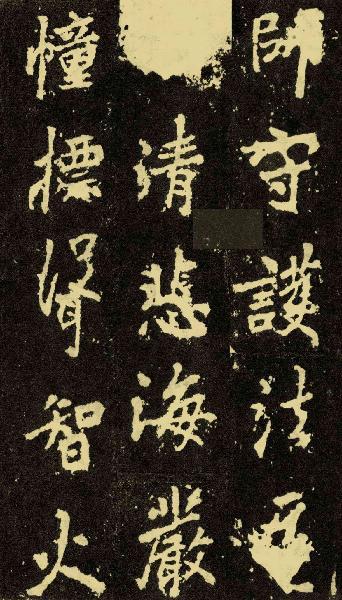 師守護法
清悲海嚴
幢標智火